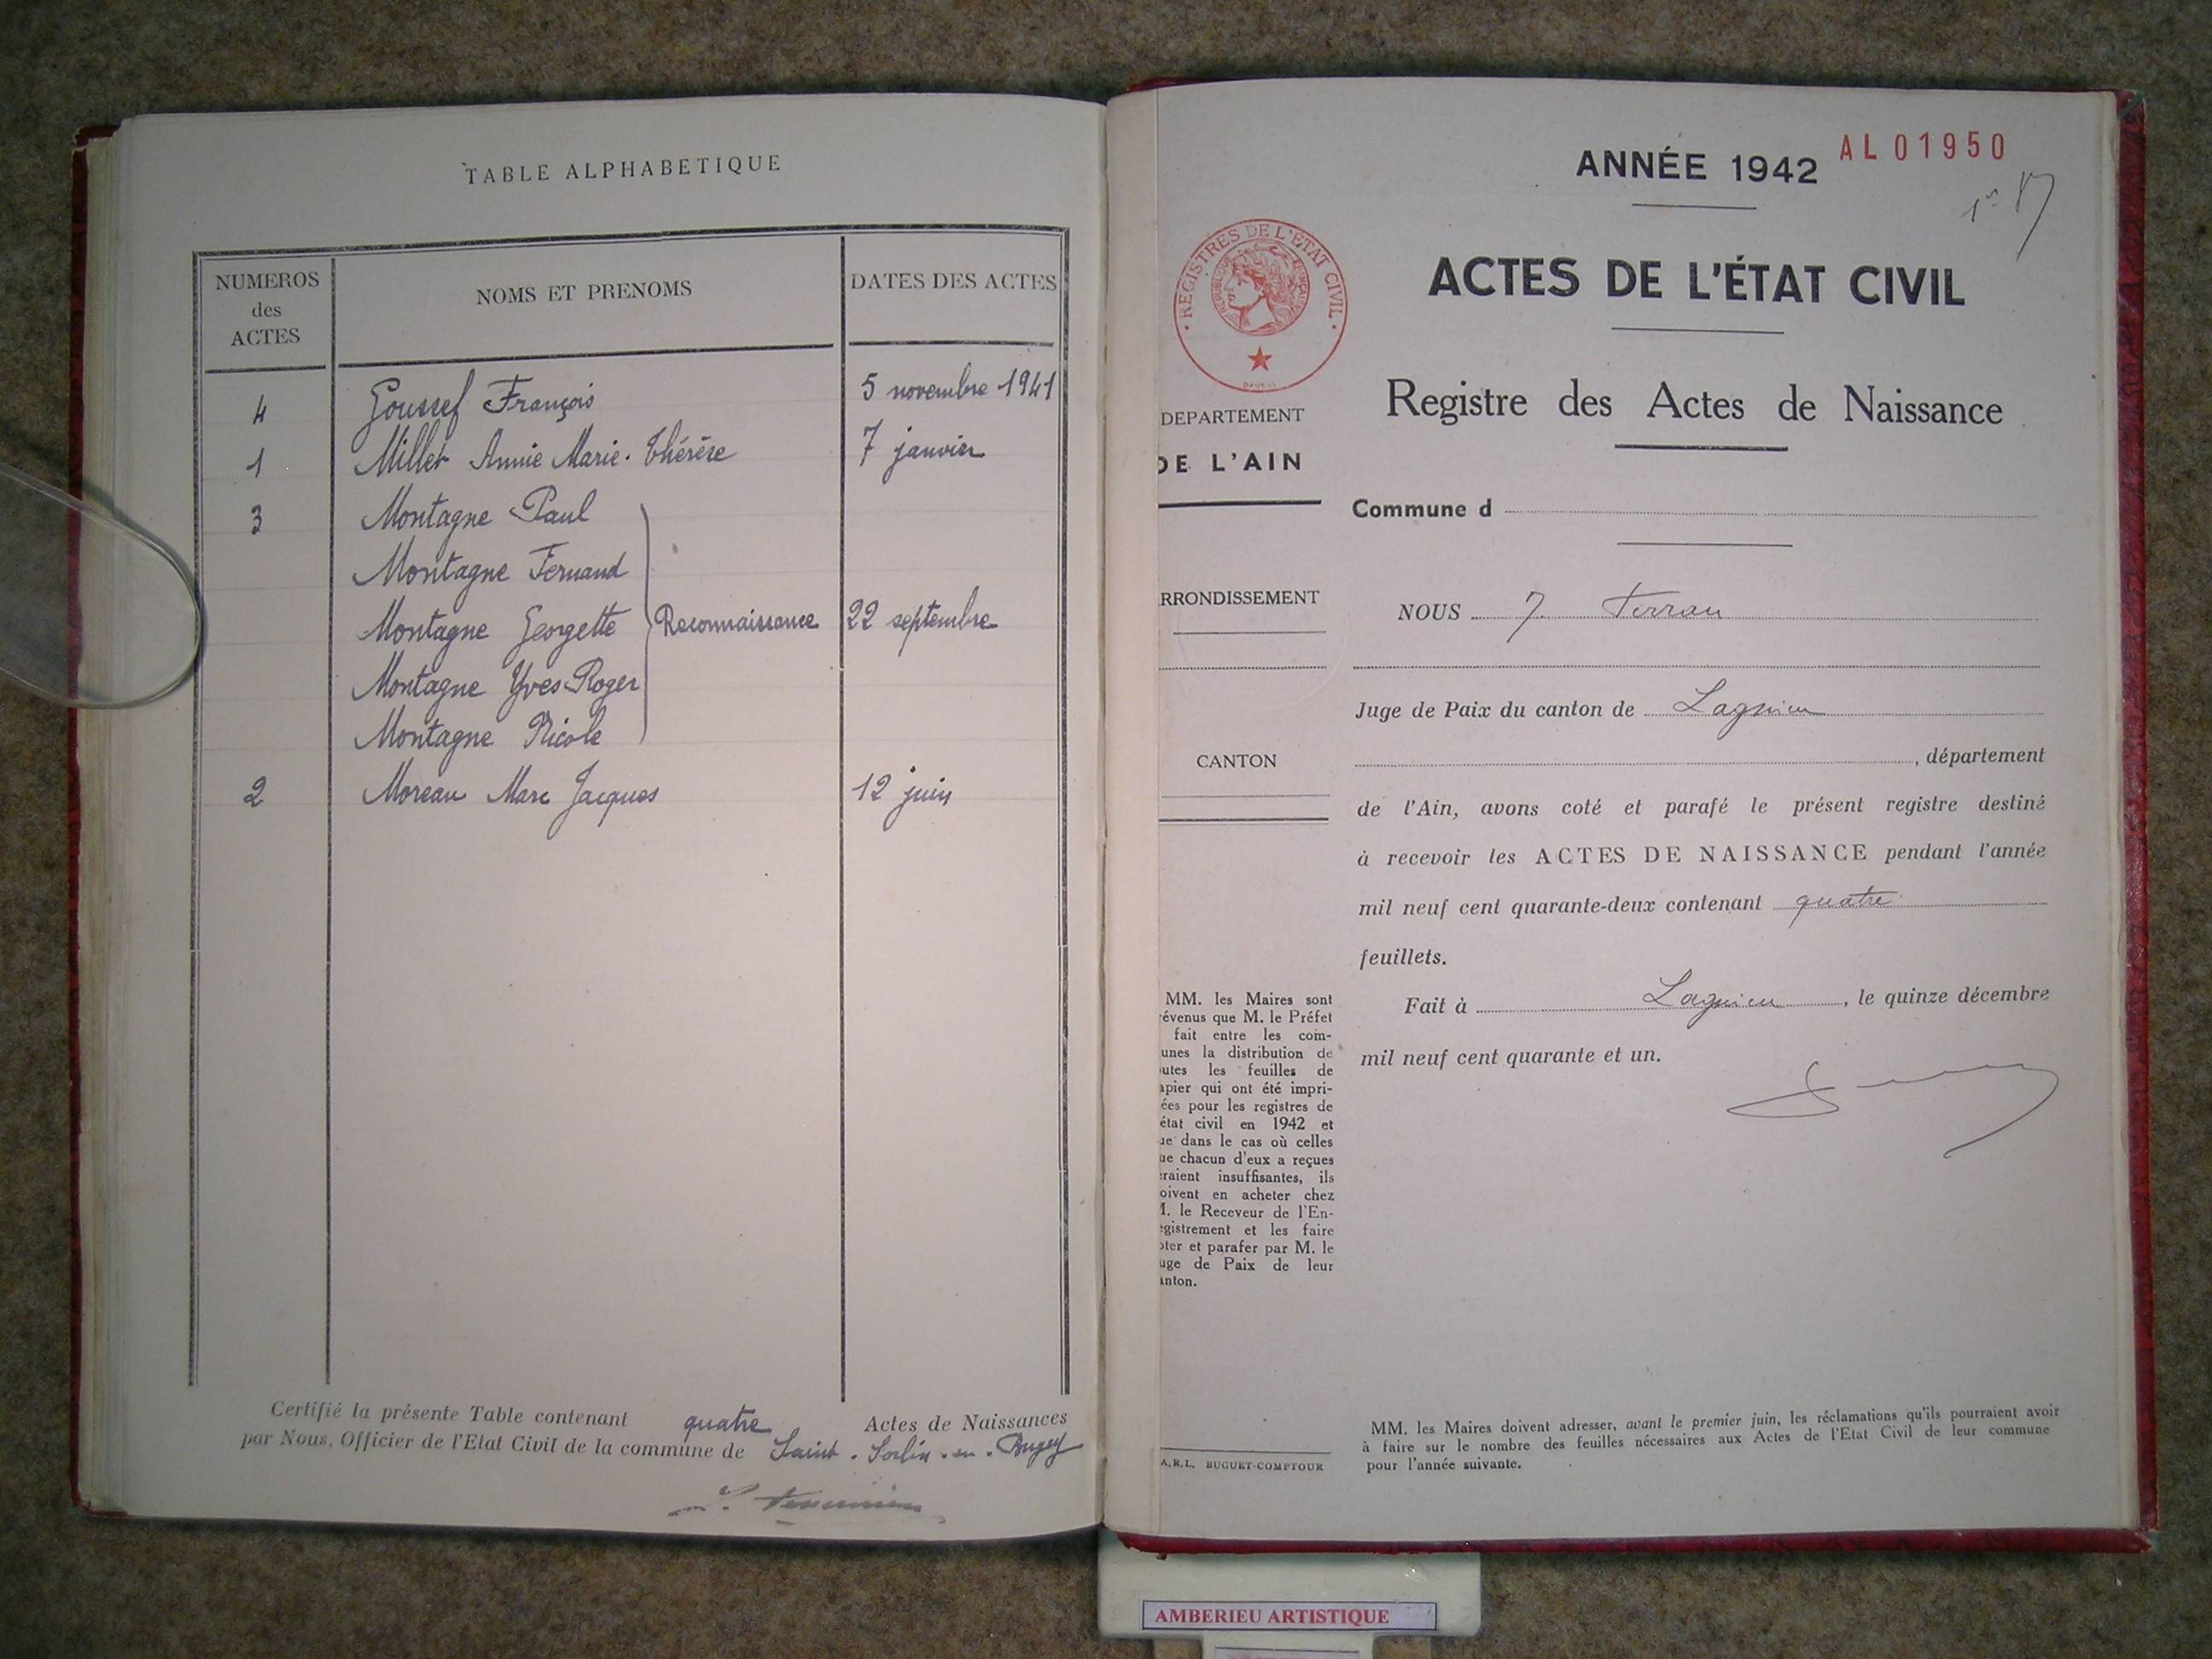 TABLE ALPHABETIQUE
NUMEROS des ACTES
NOMS ET PRENOMS
DATES DES ACTES
4 Goussef François 5 novembre 1941
1 Millet Annie Marie-Thérèse 7 janvier
3 Montagne Paul
Montagne Fernand
Montagne Georgette Reconnaissance 22 septembre
Montagne Yves-Roger
Montagne Nicole
2 Moreau Marc Jacques 12 juin
Certifié la présente Table contenant quatre Actes de Naissances
par Nous, Officier de l'Etat Civil de la commune de Saint-Sorlin-en-Bugey
ANNÉE 1942
AL01950
ACTES DE L'ÉTAT CIVIL
REGISTRES DE L'ETAT CIVIL
Registre des Actes de Naissance
DEPARTEMENT
DE L'AIN
RRONDISSEMENT
CANTON
MM. les Maires sont
révenus que M. le Préfet
fait entre les com-
unes la distribution de
utes les feuilles de
apier qui ont été impri-
ées pour les registres de
état civil en 1942 et
ue dans le cas où celles
ue chacun d'eux a reçues
eraient insuffisantes, ils
oivent en acheter chez
M. le Receveur de l'En-
egistrement et les faire
oter et parafer par M. le
uge de Paix de leur
anton.
A.R.L. BUGUET-COMPTOUR
Commune d
NOUS J. Ferran
Juge de Paix du canton de Lagnieu
, département
de l'Ain, avons coté et parafé le présent registre destiné
à recevoir les ACTES DE NAISSANCE pendant l'année
mil neuf cent quarante-deux contenant quatre
feuillets.
Fait à Lagnieu, le quinze décembre
mil neuf cent quarante et un.
MM. les Maires doivent adresser, avant le premier juin, les réclamations qu'ils pourraient avoir
à faire sur le nombre des feuilles nécessaires aux Actes de l'Etat Civil de leur commune
pour l'année suivante.
AMBERIEU ARTISTIQUE